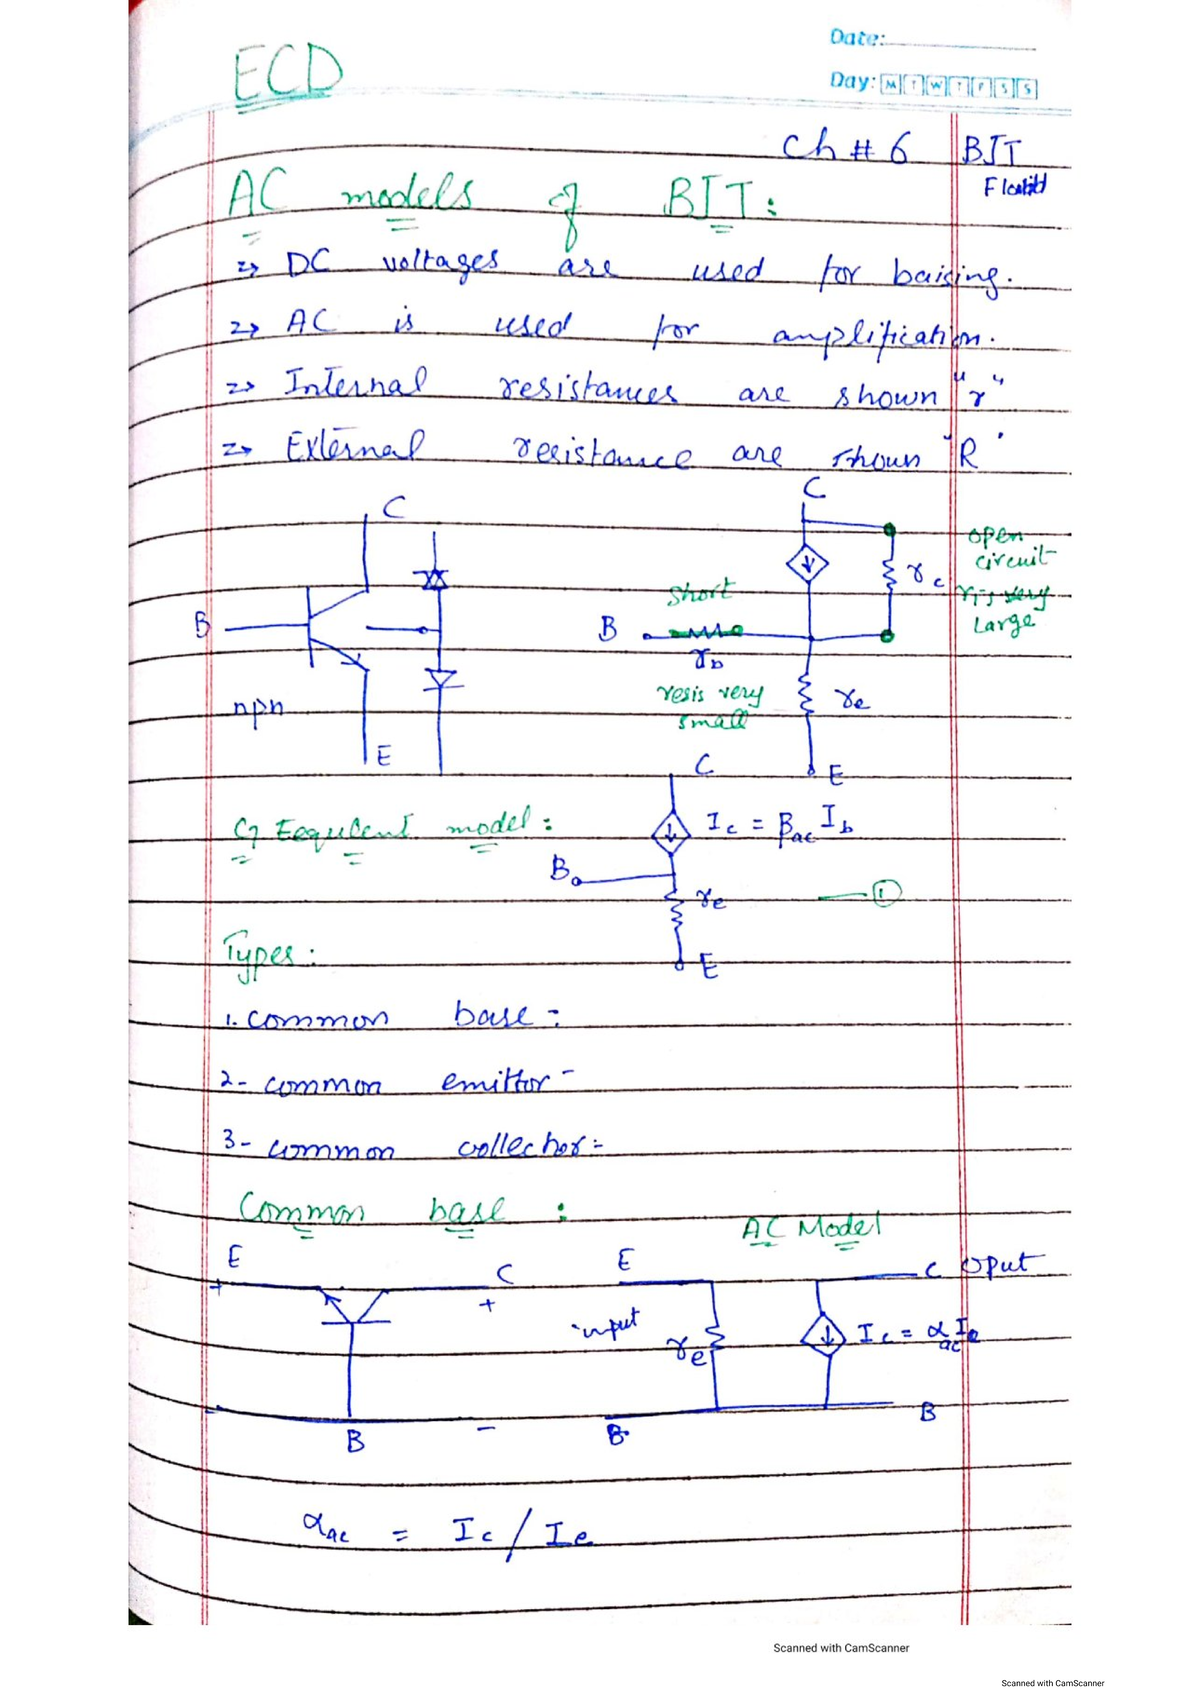 Date:
Day: M T W T F S S
ECD
Ch # 6 BJT
AC models of BJT:
=> DC voltages are used for baising.
=> AC is used for amplification.
=> Internal resistances are shown "r"
=> External resistance are shown "R"
C
B
npn
E
C
open circuit
r is very Large
rc
Short
B
rb
resis very small
re
E
Eequlent model:
C
Ic = βac Ib
B
re
①
E
Types:
1. common base:
2- common emittor-
3- common collector=
Common base :
AC Model
E
+
C
+
B
-
E
input
re
C Oput
Ic = αac Ie
B
B
αac = Ic / Ie
Scanned with CamScanner
Scanned with CamScanner